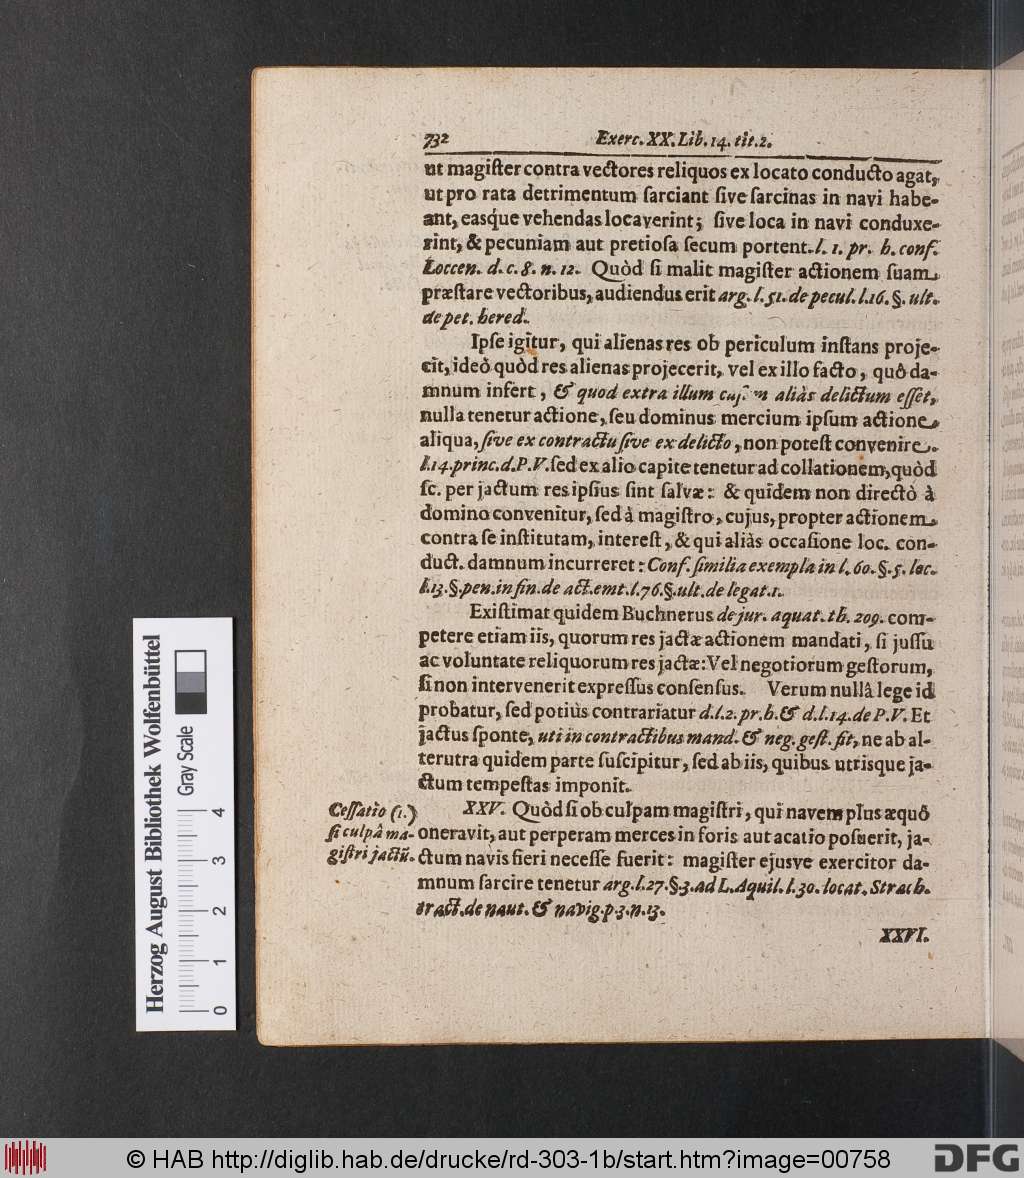 732 Exerc. XX. Lib. 14. tit. 2.
ut magiſter contra vectores reliquos ex locato conducto agat,
ut pro rata detrimentum ſarciant ſive ſarcinas in navi habe-
ant, easq́ue vehendas locaverint; ſive loca in navi conduxe-
rint, & pecuniam aut pretioſa ſecum portent. l. 1. pr. h. conf.
Loccen. d. c. 8. n. 12. Quòd ſi malit magiſter actionem ſuam
præſtare vectoribus, audiendus erit arg. l. 51. de pecul. l. 16. §. ult.
de pet. hered.
Ipſe igitur, qui alienas res ob periculum inſtans proje-
cit, ideò quòd res alienas projecerit, vel ex illo facto, quô da-
mnum infert, & quod extra illum aliàs delictum eſſet,
nulla tenetur actione, ſeu dominus mercium ipſum actione
aliqua, ſive ex contractu ſive ex delicto, non poteſt convenire.
l. 14. princ. d. P. V. ſed ex alio capite tenetur ad collationem, quòd
ſc. per jactum res ipſius ſint ſalvæ: & quidem non directò à
domino convenitur, ſed à magiſtro, cujus, propter actionem
contra ſe inſtitutam, intereſt, & qui aliàs occaſione loc. con-
duct. damnum incurreret: Conf. ſimilia exempla in l. 60. §. 5. loc.
l. 13. §. pen. in fin. de act. emt. l. 76. §. ult. de legat. 1.
Exiſtimat quidem Buchnerus de jur. aquat. th. 209. com-
petere etiam iis, quorum res jactæ actionem mandati, ſi juſſu
ac voluntate reliquorum res jactæ: Vel negotiorum geſtorum,
ſi non intervenerit expreſſus conſenſus. Verum nullâ lege id
probatur, ſed potiùs contrariatur d. l. 2. pr. h. & d. l. 14. de P. V. Et
jactus ſponte, uti in contractibus mand. & neg. geſt. fit, ne ab al-
terutra quidem parte ſuſcipitur, ſed ab iis, quibus utrisque ja-
ctum tempeſtas imponit.
Ceſſatio (1.)
ſi culpâ ma-
giſtri jactũ.
XXV. Quòd ſi ob culpam magiſtri, qui navem plus æquô
oneravit, aut perperam merces in foris aut acatio poſuerit, ja-
ctum navis fieri neceſſe fuerit: magiſter ejusve exercitor da-
mnum ſarcire tenetur arg. l. 27. §. 3. ad L. Aquil. l. 30. locat. Strach.
tract. de naut. & navig. p. 3. n. 13.
XXVI.
Herzog August Bibliothek Wolfenbüttel
Gray Scale
0 1 2 3 4
© HAB http://diglib.hab.de/drucke/rd-303-1b/start.htm?image=00758
DFG